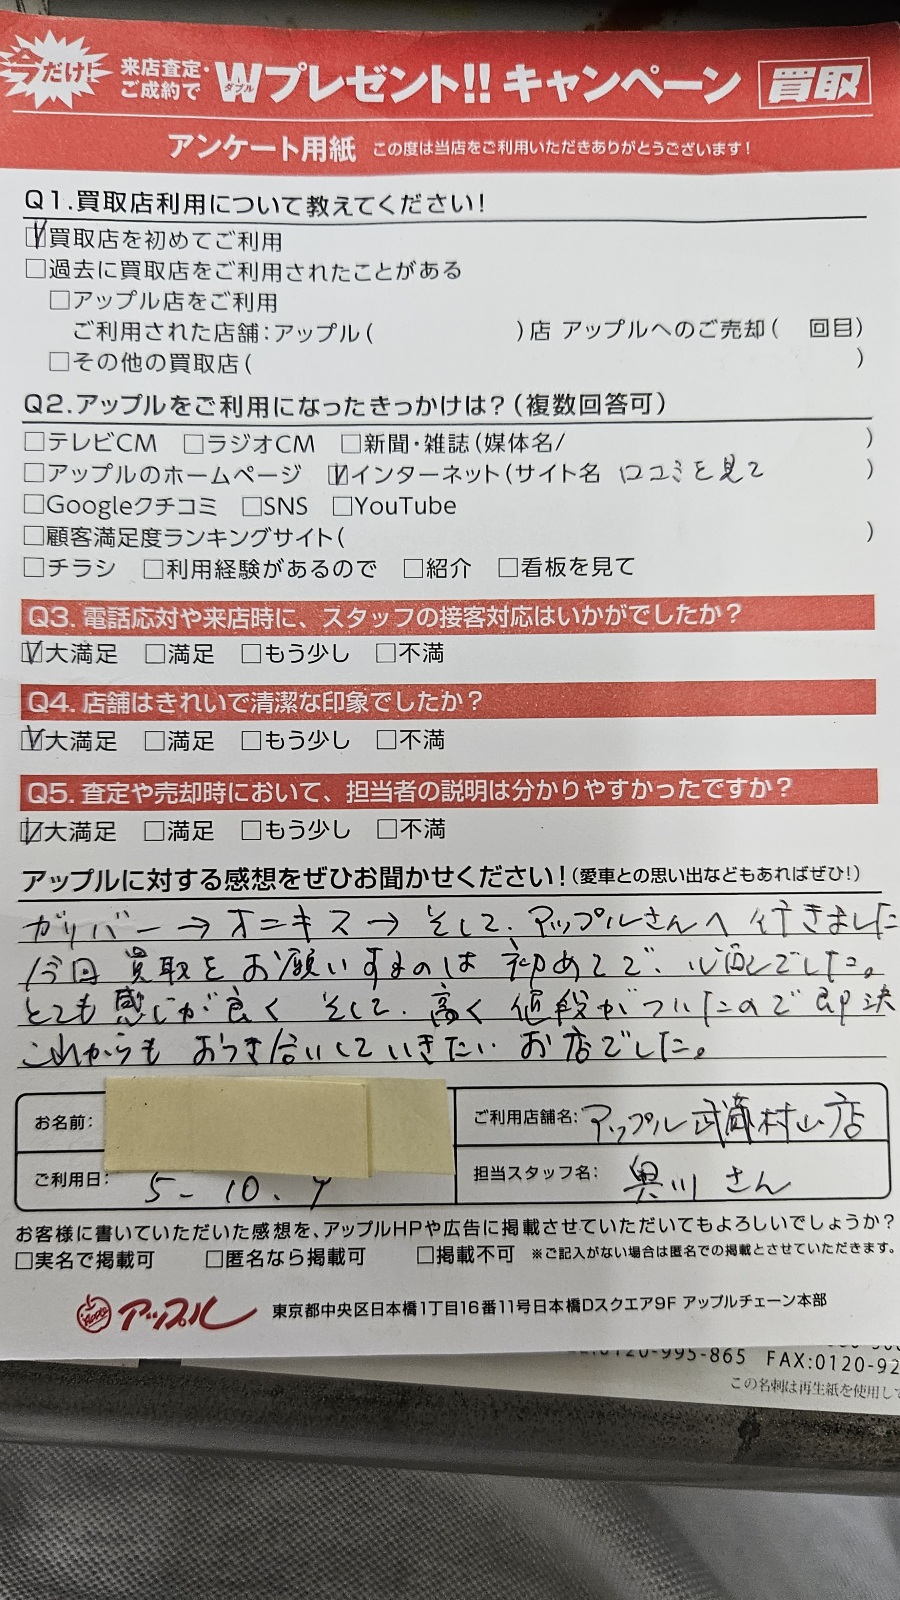 今だけ!
来店査定・ご成約で Wダブルプレゼント!! キャンペーン 買取
アンケート用紙 この度は当店をご利用いただきありがとうございます!
Q1.買取店利用について教えてください!
☑買取店を初めてご利用
□過去に買取店をご利用されたことがある
□アップル店をご利用
ご利用された店舗:アップル( )店 アップルへのご売却( 回目)
□その他の買取店( )
Q2.アップルをご利用になったきっかけは?(複数回答可)
□テレビCM □ラジオCM □新聞・雑誌(媒体名/ )
□アップルのホームページ ☑インターネット(サイト名 口コミを見て )
□Googleクチコミ □SNS □YouTube
□顧客満足度ランキングサイト( )
□チラシ □利用経験があるので □紹介 □看板を見て
Q3. 電話応対や来店時に、スタッフの接客対応はいかがでしたか?
☑大満足 □満足 □もう少し □不満
Q4. 店舗はきれいで清潔な印象でしたか?
☑大満足 □満足 □もう少し □不満
Q5. 査定や売却時において、担当者の説明は分かりやすかったですか?
☑大満足 □満足 □もう少し □不満
アップルに対する感想をぜひお聞かせください!(愛車との思い出などもあればぜひ!)
ガリバー→オニキス→そして、アップルさんへ行きました
今回買取をお願いするのは初めてで、心配でした。
とても感じが良くそして、高く値段がついたので即決
これからもおつき合いしていきたいお店でした。
お名前:
ご利用店舗名:アップル武蔵村山店
ご利用日: 5-10.9
担当スタッフ名: 奥川さん
お客様に書いていただいた感想を、アップルHPや広告に掲載させていただいてもよろしいでしょうか?
□実名で掲載可 □匿名なら掲載可 □掲載不可 ※ご記入がない場合は匿名での掲載とさせていただきます。
アップル 東京都中央区日本橋1丁目16番11号日本橋Dスクエア9F アップルチェーン本部
0120-995-865 FAX:0120-92
この名刺は再生紙を使用して